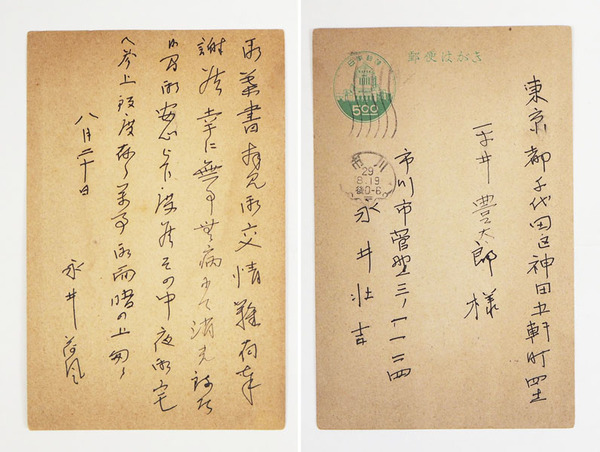 御葉書拝見御交情難有奉
謝候 幸に無事無病にて消光致居
候間御安心被下度候その中夜御宅
へ参上致度存候 萬事御面晤の上 匆々
八月二十日
永井荷風
郵便はがき
日本郵便
500
市川
29
8.19
后0-6
東京都千代田区神田五軒町
平井豊太郎様
市川市菅野三ノ一一二四
永井壮吉